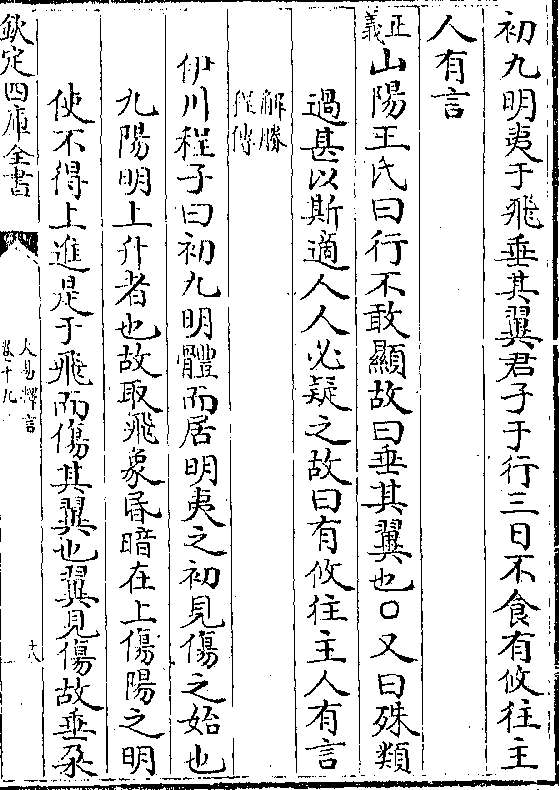 初九明夷于飛垂其翼君子于行三日不食有攸往主
人有言
正義山陽王氏曰行不敢顯故曰垂其翼也○又曰殊類
過甚以斯適人人必疑之故曰有攸往主人有言
解勝程傳
伊川程子曰初九明體而居明夷之初見傷之始也
九陽明上升者也故取飛象昬暗在上傷陽之明
使不得上進是于飛而傷其翼也翼見傷故垂朶
欽定四庫全書
大易擇言
卷十九
十八